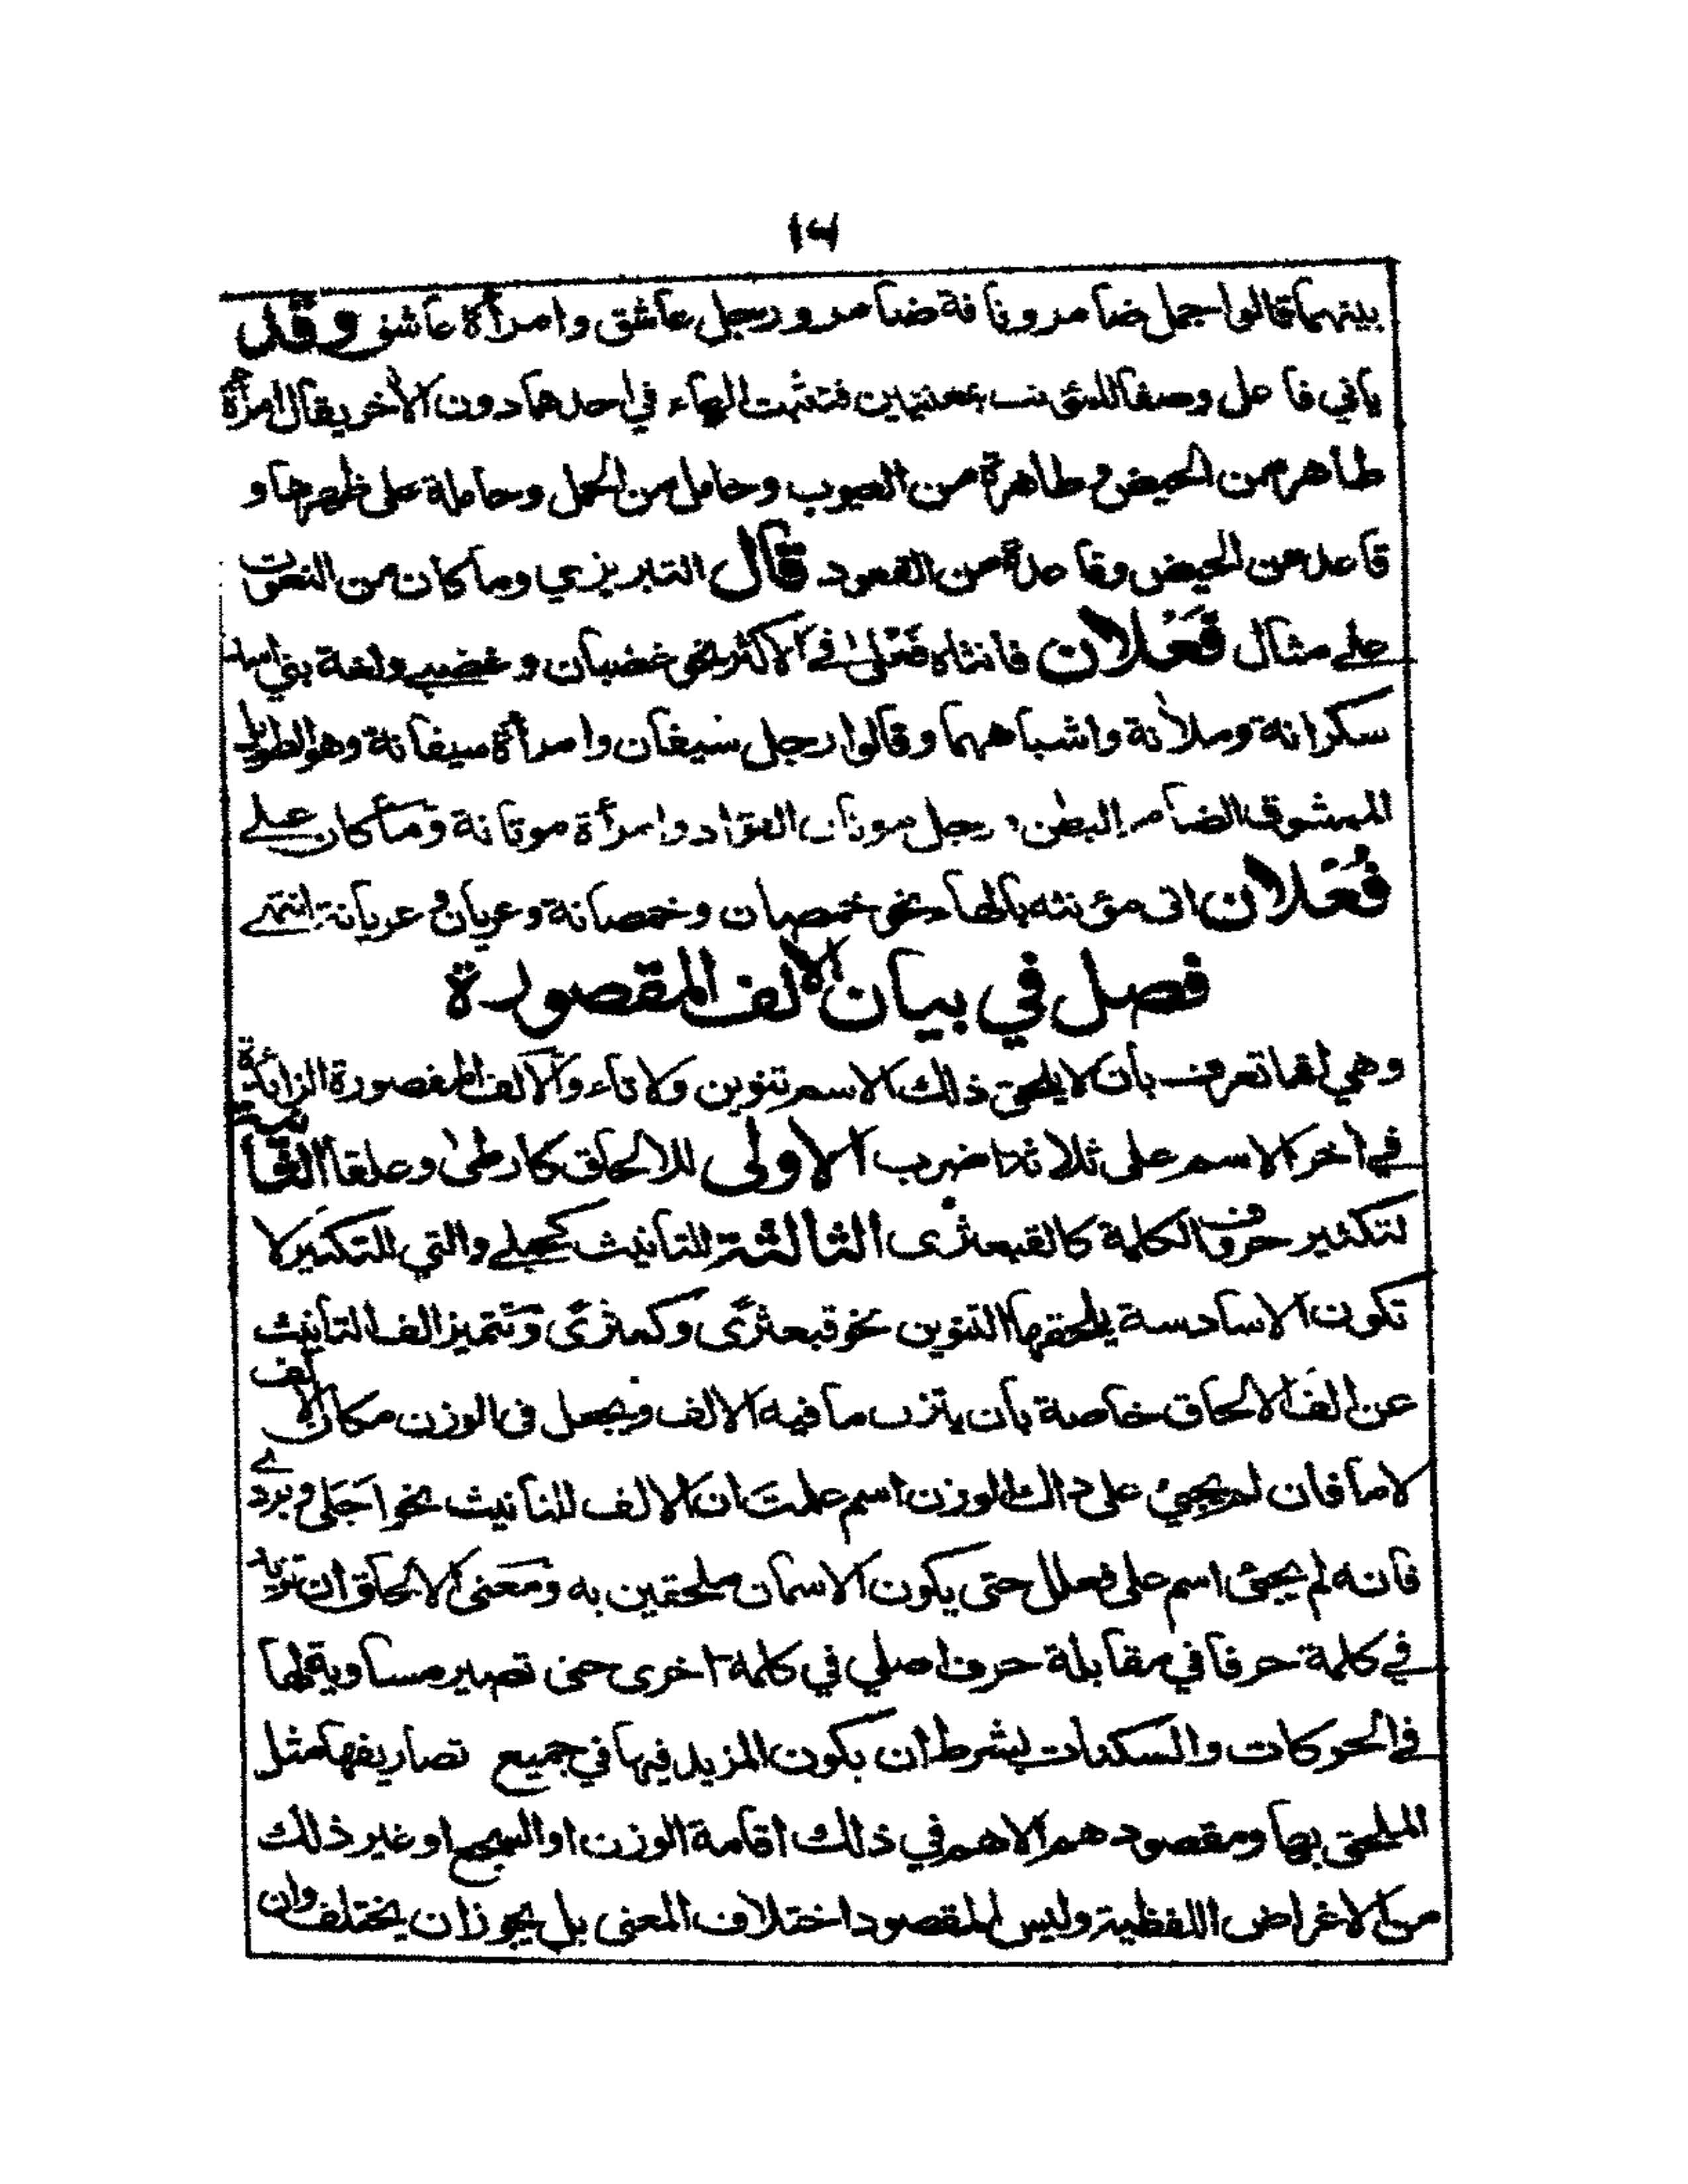 ١٦
بينهما قالوا جمل ضامر وناقة ضامر ورجل عاشق وامرأة عاشق وقد
ياتي فاعل وصفا للمؤنث بمعنيين فتثبت الهاء في احدهما دون الأخر يقال امرأة
طاهر من الحيض وطاهرة من العيوب وحامل من الحمل وحاملة على ظهرها و
قاعد عن الحيض وقاعدة من القعود قال التبريزي وما كان من النعوت
على مثال فَعْلان فانثاه فَعْلىٰ في الاكثر نحو غضبان وغضبى ولغة بني اسد
سكرانة وملأنة واشباههما وقالوا رجل سيفان وامرأة سيفانة وهو الطويل
الممشوق الضامر البطن ورجل موتان الفؤاد وامرأة موتانة وما كان على
فُعْلان اتى مؤنثه بالهاء نحو خمصان وخمصانة وعريان وعريانة انتهى
فصل في بيان الالف المقصورة
وهي انما تعرف بأن لا يلحق ذلك الاسم تنوين ولا تاء والالف المقصورة الزائدة
في اخر الاسم على ثلاثة اضرب الاولى للالحاق كارطىٰ وعلقا الثانية
لتكثير حروف الكلمة كالقبعثرى الثالثة للتانيث كحبلى والتي للتكثير لا
تكون الا سادسة يلحقها التنوين نحو قبعثرًى وكمثرًى وتتميز الف التانيث
عن الف الالحاق خاصة بان يتزن ما فيه الالف ويجعل فى الوزن مكان الالف
لاما فان لم يجئ على ذالك الوزن اسم علمت ان الالف للتانيث نحو اجَلى وبردى
فانه لم يجئ اسم على فعلل حتى يكون الاسمان ملحقين به ومعنى الالحاق ان تزيد
في كلمة حرفا في مقابلة حرف اصلي في كلمة اخرى حتى تصير مساوية لها
في الحركات والسكنات بشرط ان يكون المزيد فيها في جميع تصاريفها مثل
الملحق بها ومقصودهم الاهم في ذلك اقامة الوزن او السجع او غير ذلك
من الاغراض اللفظية وليس المقصود اختلاف المعنى بل يجوز ان يختلف وان